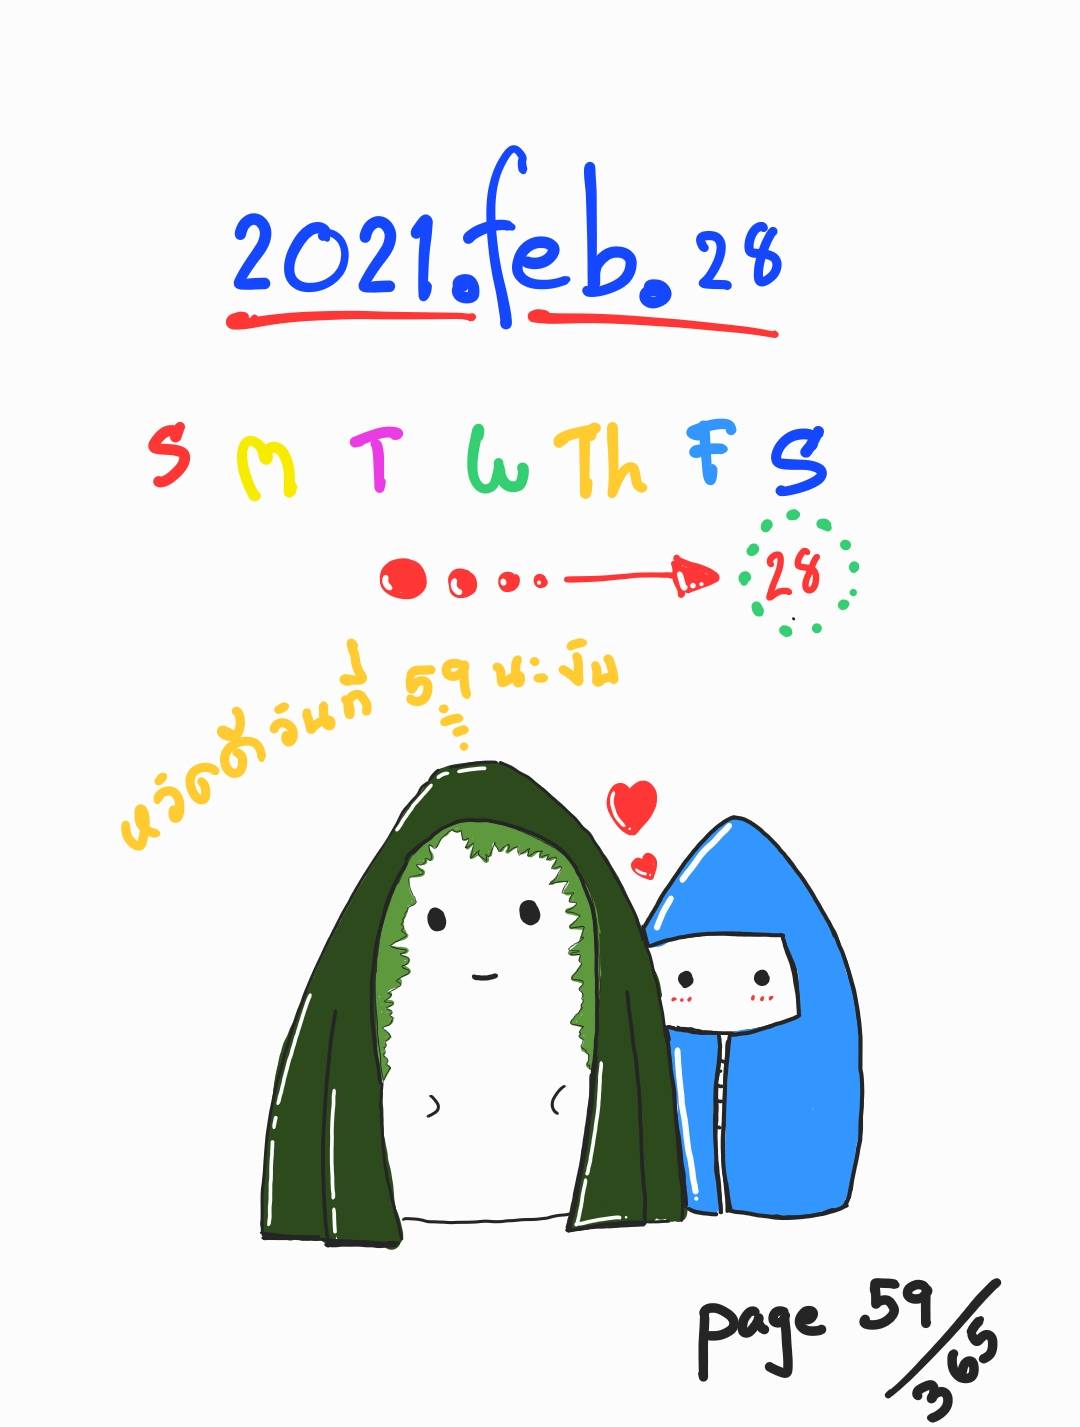 2021.feb.28
S M T W Th F S
28
หวัดดีวันที่ 59 นะงับ
page 59/365